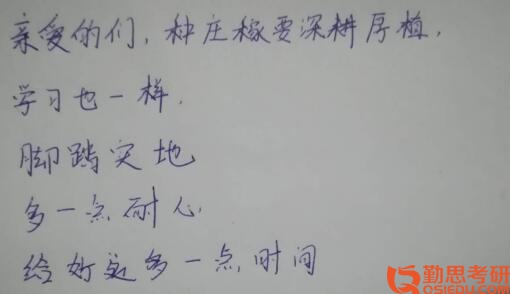 亲爱的们，种庄稼要深耕厚植，
学习也一样.
脚踏实地
多一点耐心.
给好运多一点时间
勤思考研
QSIEDU.COM